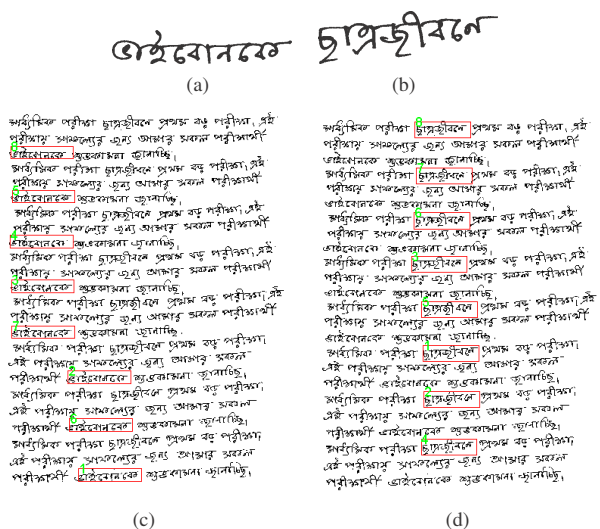 ভাইবোনকে
ছাত্রজীবনে
(a)
(b)
মাধ্যমিক পরীক্ষা ছাত্রজীবনে প্রথম বড় পরীক্ষা, এই
পরীক্ষায় সাফল্যের জন্য আমার সকল পরীক্ষার্থী
ভাইবোনকে শুভকামনা জানাচ্ছি,
মাধ্যমিক পরীক্ষা ছাত্রজীবনে প্রথম বড় পরীক্ষা, এই
পরীক্ষায় সাফল্যের জন্য আমার সকল পরীক্ষার্থী
ভাইবোনকে শুভকামনা জানাচ্ছি,
মাধ্যমিক পরীক্ষা ছাত্রজীবনে প্রথম বড় পরীক্ষা, এই
পরীক্ষায় সাফল্যের জন্য আমার সকল পরীক্ষার্থী
ভাইবোনকে শুভকামনা জানাচ্ছি,
মাধ্যমিক পরীক্ষা ছাত্রজীবনে প্রথম বড় পরীক্ষা, এই
পরীক্ষায় সাফল্যের জন্য আমার সকল পরীক্ষার্থী
ভাইবোনকে শুভকামনা জানাচ্ছি,
মাধ্যমিক পরীক্ষা ছাত্রজীবনে প্রথম বড় পরীক্ষা, এই
পরীক্ষায় সাফল্যের জন্য আমার সকল পরীক্ষার্থী
ভাইবোনকে শুভকামনা জানাচ্ছি,
মাধ্যমিক পরীক্ষা ছাত্রজীবনে প্রথম বড় পরীক্ষা,
এই পরীক্ষায় সাফল্যের জন্য আমার সকল
পরীক্ষার্থী ভাইবোনকে শুভকামনা জানাচ্ছি,
মাধ্যমিক পরীক্ষা ছাত্রজীবনে প্রথম বড় পরীক্ষা,
এই পরীক্ষায় সাফল্যের জন্য আমার সকল
পরীক্ষার্থী ভাইবোনকে শুভকামনা জানাচ্ছি,
মাধ্যমিক পরীক্ষা ছাত্রজীবনে প্রথম বড় পরীক্ষা,
এই পরীক্ষায় সাফল্যের জন্য আমার সকল
পরীক্ষার্থী ভাইবোনকে শুভকামনা জানাচ্ছি,
(c)
মাধ্যমিক পরীক্ষা ছাত্রজীবনে প্রথম বড় পরীক্ষা, এই
পরীক্ষায় সাফল্যের জন্য আমার সকল পরীক্ষার্থী
ভাইবোনকে শুভকামনা জানাচ্ছি,
মাধ্যমিক পরীক্ষা ছাত্রজীবনে প্রথম বড় পরীক্ষা, এই
পরীক্ষায় সাফল্যের জন্য আমার সকল পরীক্ষার্থী
ভাইবোনকে শুভকামনা জানাচ্ছি,
মাধ্যমিক পরীক্ষা ছাত্রজীবনে প্রথম বড় পরীক্ষা, এই
পরীক্ষায় সাফল্যের জন্য আমার সকল পরীক্ষার্থী
ভাইবোনকে শুভকামনা জানাচ্ছি,
মাধ্যমিক পরীক্ষা ছাত্রজীবনে প্রথম বড় পরীক্ষা, এই
পরীক্ষায় সাফল্যের জন্য আমার সকল পরীক্ষার্থী
ভাইবোনকে শুভকামনা জানাচ্ছি,
মাধ্যমিক পরীক্ষা ছাত্রজীবনে প্রথম বড় পরীক্ষা, এই
পরীক্ষায় সাফল্যের জন্য আমার সকল পরীক্ষার্থী
ভাইবোনকে শুভকামনা জানাচ্ছি,
মাধ্যমিক পরীক্ষা ছাত্রজীবনে প্রথম বড় পরীক্ষা,
এই পরীক্ষায় সাফল্যের জন্য আমার সকল
পরীক্ষার্থী ভাইবোনকে শুভকামনা জানাচ্ছি,
মাধ্যমিক পরীক্ষা ছাত্রজীবনে প্রথম বড় পরীক্ষা,
এই পরীক্ষায় সাফল্যের জন্য আমার সকল
পরীক্ষার্থী ভাইবোনকে শুভকামনা জানাচ্ছি,
মাধ্যমিক পরীক্ষা ছাত্রজীবনে প্রথম বড় পরীক্ষা,
এই পরীক্ষায় সাফল্যের জন্য আমার সকল
পরীক্ষার্থী ভাইবোনকে শুভকামনা জানাচ্ছি,
(d)